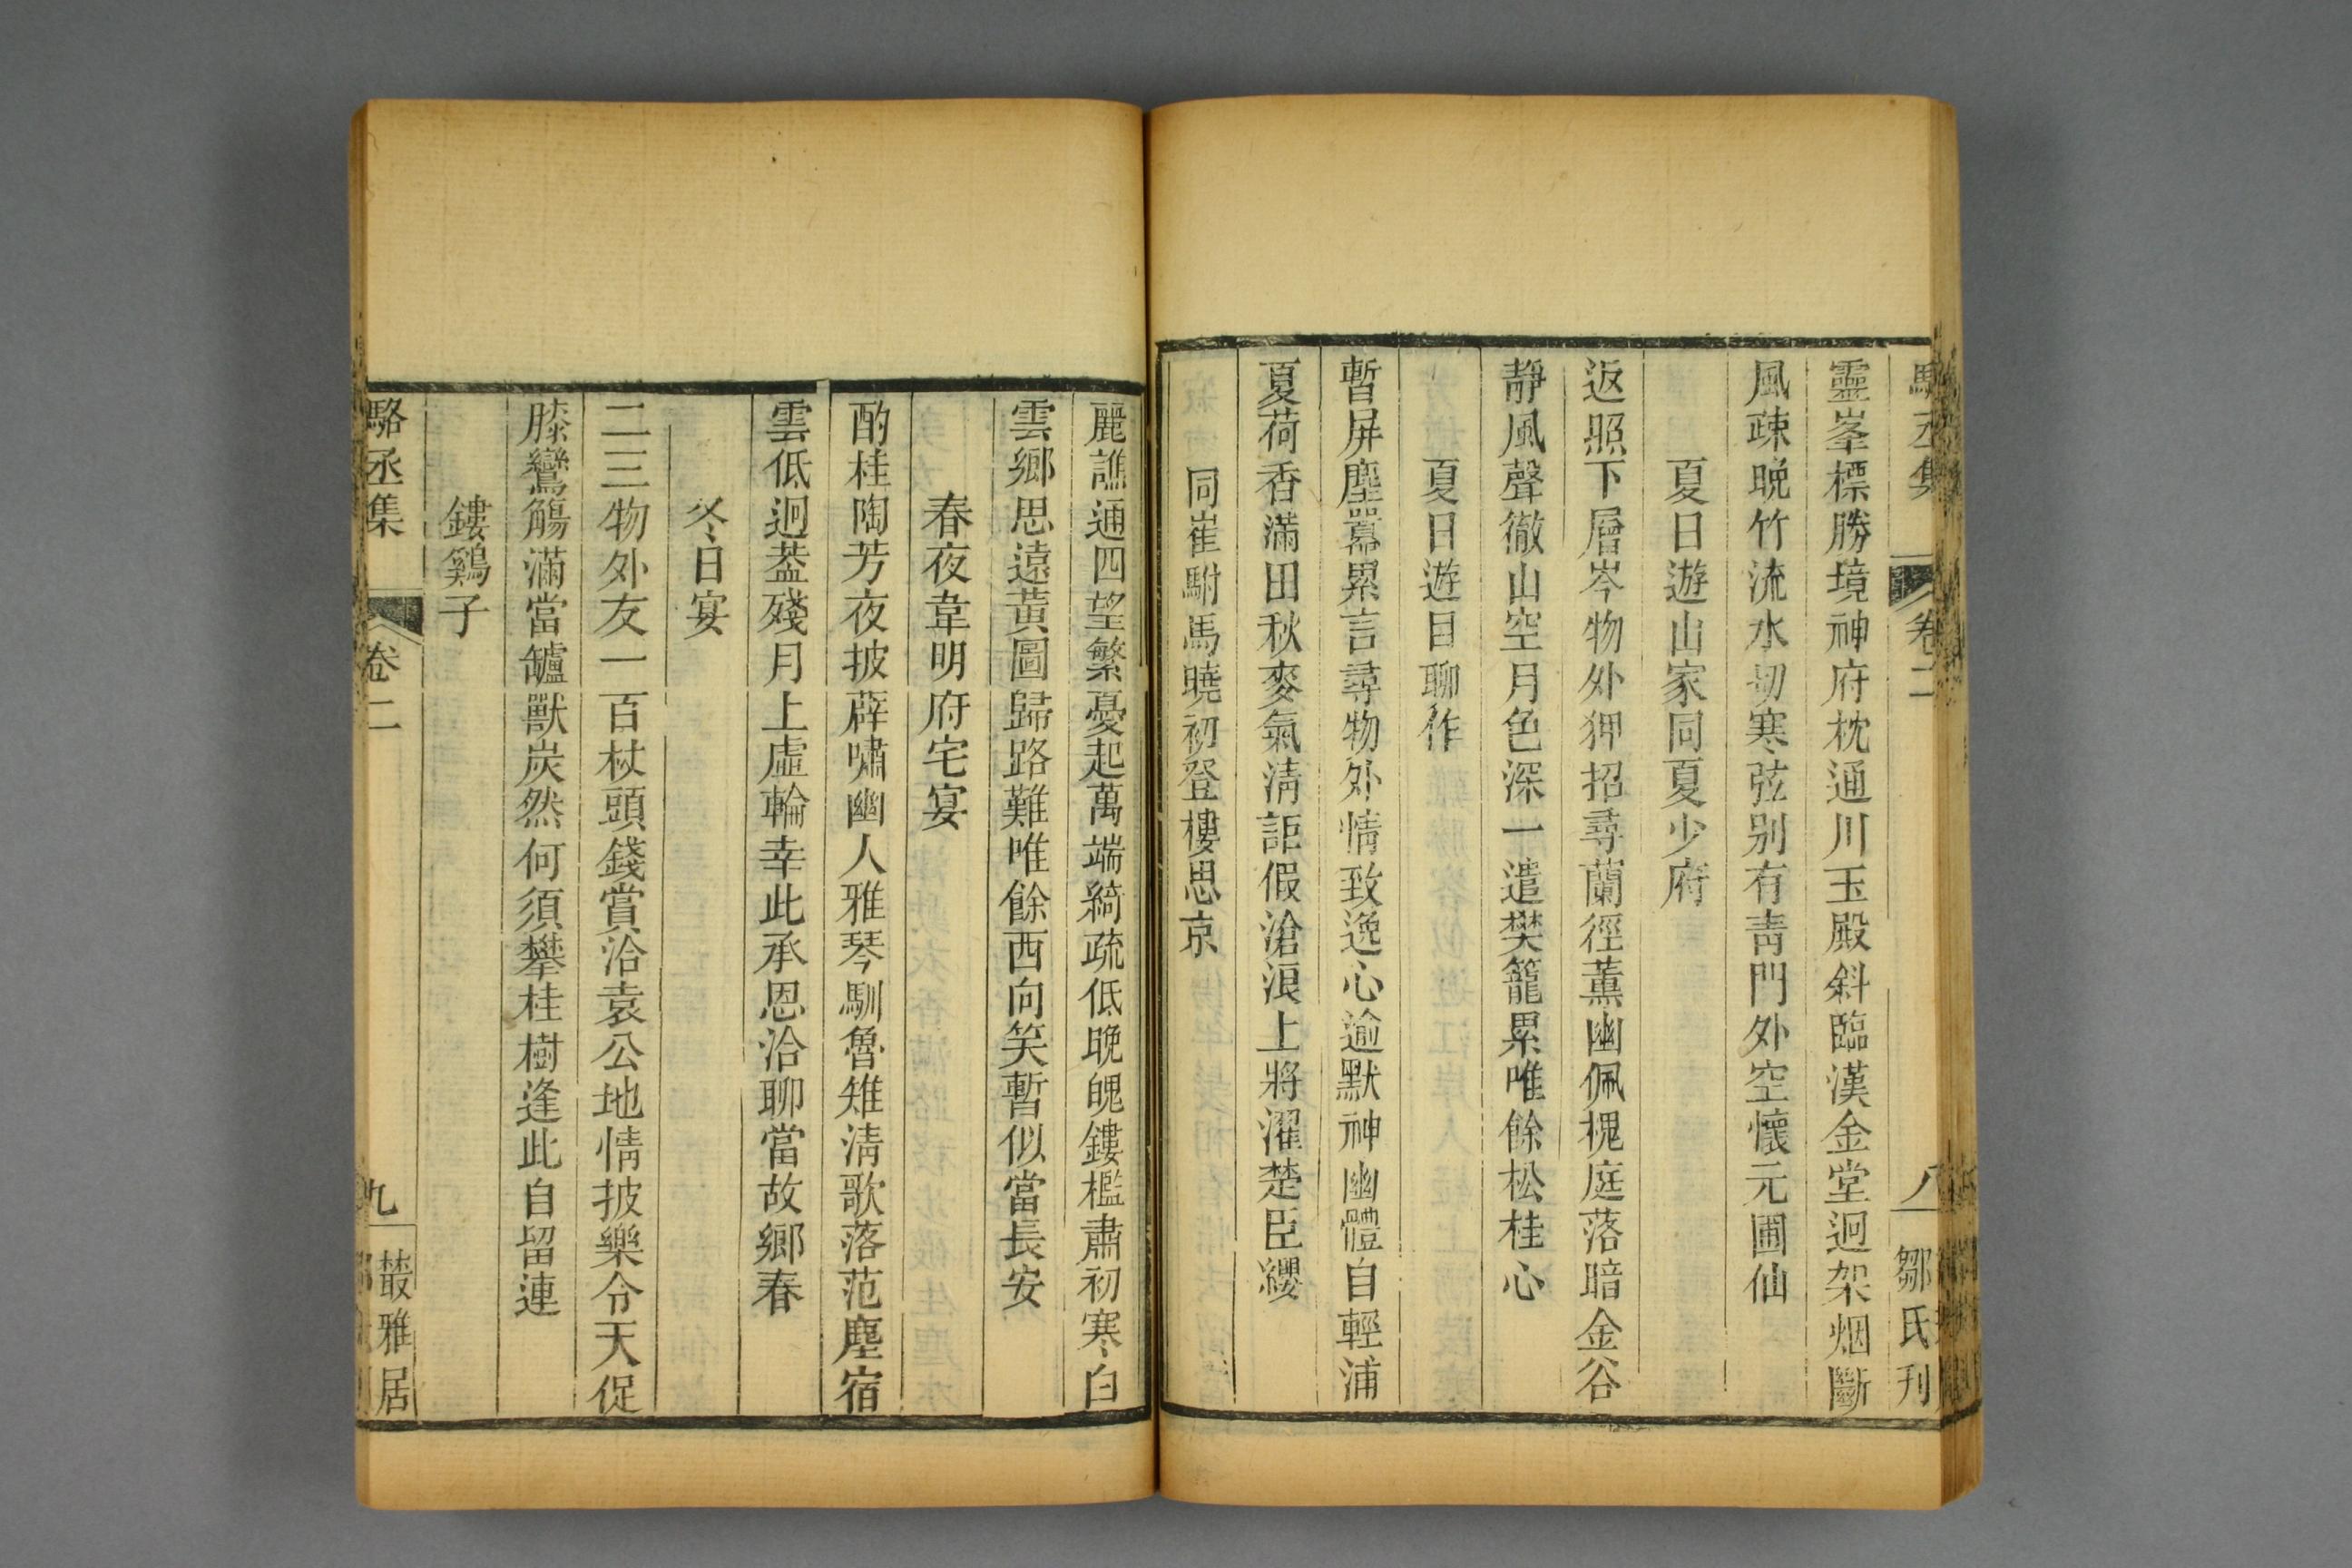 駱丞集
卷二
鄒氏刊
靈峯標勝境神府枕通川玉殿斜臨漢金堂迥架烟斷
風疎晚竹流水切寒弦别有青門外空懷元圃仙
夏日遊山家同夏少府
返照下層岑物外狎招尋蘭徑薰幽佩槐庭落暗金谷
靜風聲徹山空月色深一遣樊籠累唯餘松桂心
夏日遊目聊作
暫屏塵囂累言尋物外情致逸心逾默神幽體自輕浦
夏荷香滿田秋麥氣淸詎假滄浪上將濯楚臣纓
同崔駙馬曉初登樓思京
麗譙通四望繁憂起萬端綺疏低晚魄鏤檻肅初寒白
雲鄉思遠黃圖歸路難唯餘西向笑暫似當長安
春夜韋明府宅宴
酌桂陶芳夜披薜嘯幽人雅琴馴魯雉淸歌落范塵宿
雲低迥葢殘月上虛輪幸此承恩洽聊當故鄉春
冬日宴
二三物外友一百杖頭錢賞洽袁公地情披樂令天促
膝鸞觴滿當罏獸炭然何須攀桂樹逢此自留連
鏤鷄子
駱丞集
卷二
九
叢雅居